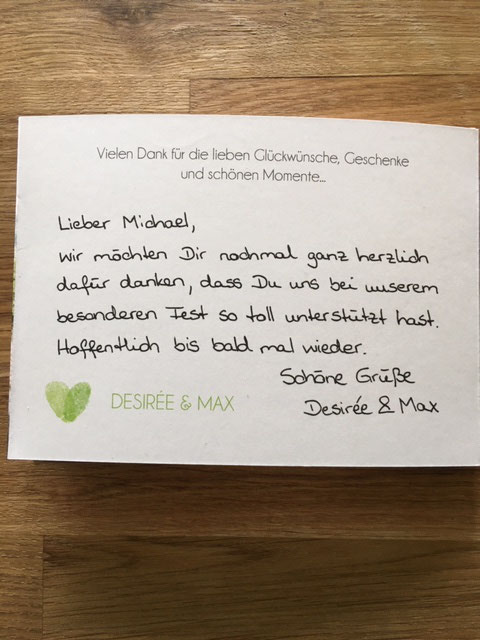 Vielen Dank für die lieben Glückwünsche, Geschenke
und schönen Momente...
Lieber Michael,
wir möchten Dir nochmal ganz herzlich
dafür danken, dass Du uns bei unserem
besonderen Fest so toll unterstützt hast.
Hoffentlich bis bald mal wieder.
Schöne Grüße
Desirée & Max
DESIRÉE & MAX